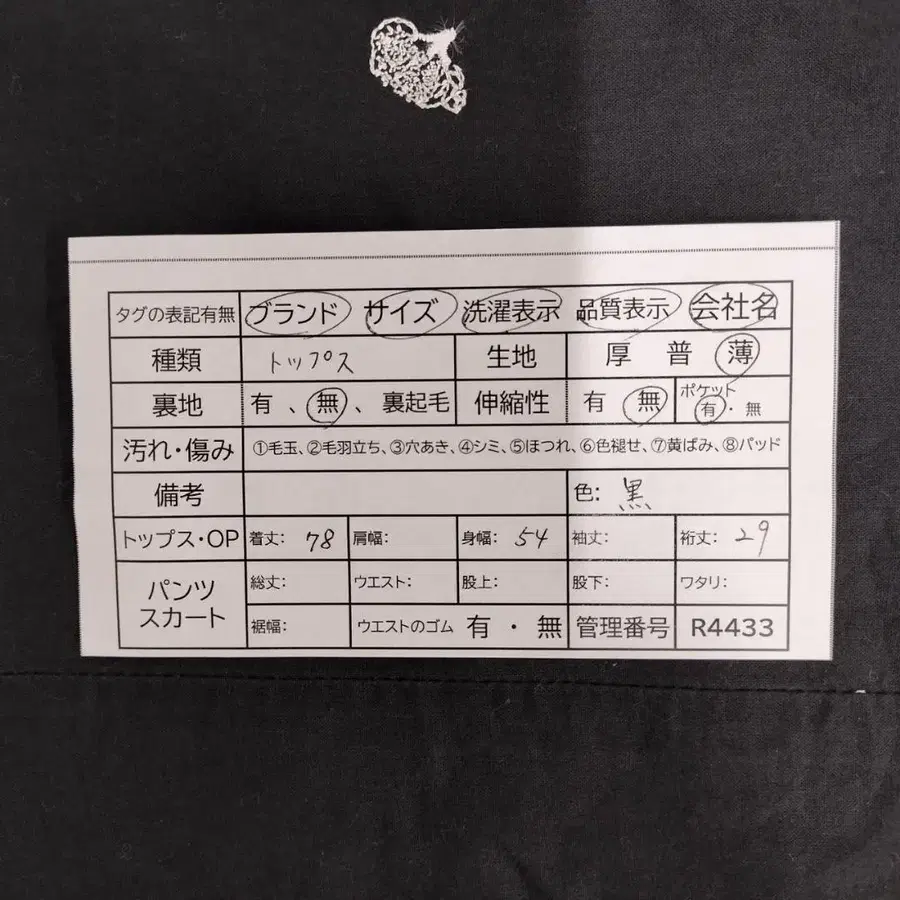 タグの表記有無 ブランド サイズ 洗濯表示 品質表示 会社名
種類 トップス 生地 厚 普 薄
裏地 有 、無 、裏起毛 伸縮性 有 無 ポケット 有・無
汚れ・傷み ①毛玉、②毛羽立ち、③穴あき、④シミ、⑤ほつれ、⑥色褪せ、⑦黄ばみ、⑧パッド
備考 色: 黒
トップス・OP 着丈: 78 肩幅: 身幅: 54 袖丈: 裄丈: 29
パンツ スカート 総丈: ウエスト: 股上: 股下: ワタリ:
裾幅: ウエストのゴム 有 ・ 無 管理番号 R4433